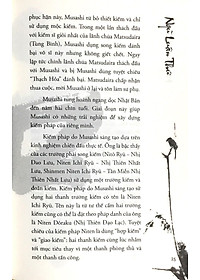 phục hận này, Musashi từ bỏ thiết kiếm và chỉ
sử dụng mộc kiếm. Trong một lần thách đấu
với kiếm sĩ giỏi nhất của lãnh chúa Matsudaira
(Tùng Bình), Musashi dùng song kiếm đánh
vỡ sĩ này nhưng không giết chết. Ngay sau
đó, đích thân lãnh chúa Matsudaira thách đấu
với Musashi và bị Musashi dùng tuyệt chiêu
"Thạch Hỏa" đánh bại. Matsudaira chấp nhận
thua cuộc, mời Musashi ở lại và tôn làm sư phụ.
Musashi rong ruổi ngang dọc Nhật Bản
đến năm hai chín tuổi. Giai đoạn này giúp
Musashi có những trải nghiệm để xây dựng
kiếm pháp của riêng mình.
Kiếm pháp do Musashi sáng tạo dựa trên
kinh nghiệm chiến đấu thực tế. Ông là bậc thầy
của các trường phái song kiếm (Nitō Ryū - Nhị
Đao Lưu, Niten Ichi Ryū - Nhị Thiên Nhất
Lưu, Shinmen Niten Ichi Ryū - Tân Miễn Nhị
Thiên Nhất Lưu) sử dụng một trường kiếm
và đoản kiếm. Kiếm pháp do Musashi sáng tạo sử
dụng hai thanh trường kiếm có tên là Niten
Ichi Ryū. Tên này là từ tư thế cầm hai trường
kiếm cũng có thể là đặt theo pháp danh của ông
là Niten Dōraku (Nhị Thiên Đạo Lạc). Tuyệt
chiêu của Niten Ichi Ryū là dụng "hợp kiếm"
và "giao kiếm": hai thanh kiếm cùng lúc nhắm
tới mục tiêu thay vì một thanh phòng thủ và
một thanh tấn công.
Ngũ Luân Thư